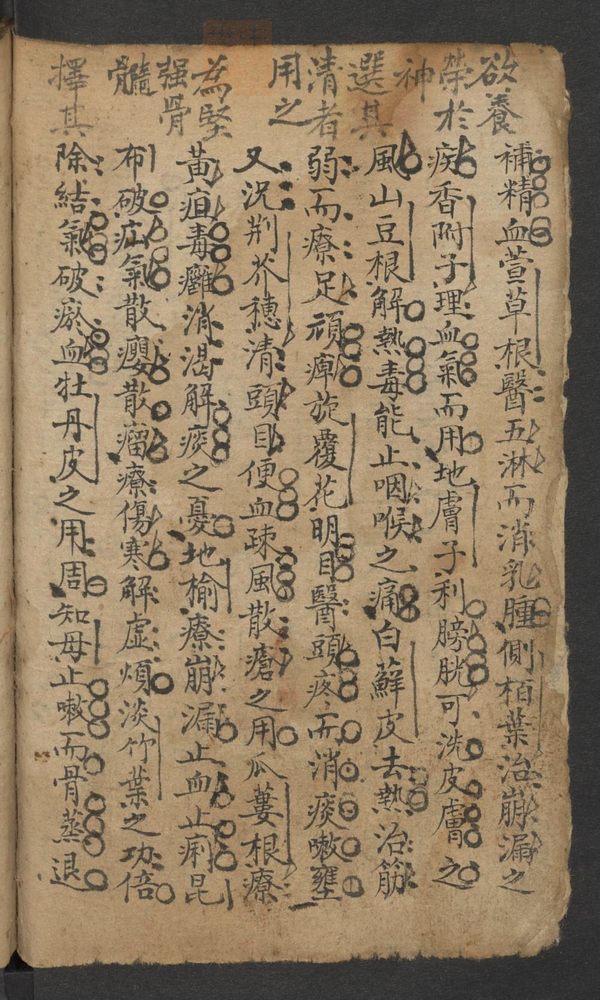 欲養
於
神
選其
清者
用之
為堅
强骨
髓
擇其
補精血萱草根醫五淋而消乳腫側栢葉治崩漏之
疾香附子理血氣而用地膚子利膀胱可洗皮膚之
風山豆根解熱毒能止咽喉之痛白蘚皮去熱治筋
弱而療足頑痺旋覆花明目醫頭疼而消痰嗽壅
又況荆芥穗清頭目便血疎風散瘡之用瓜蔞根療
黃疸毒癰消渴解痰之憂地榆療崩漏止血止痢昆
布破疝氣散癭散瘤療傷寒解虛煩淡竹葉之功倍
除結氣破瘀血牡丹皮之用周知母止嗽而骨蒸退